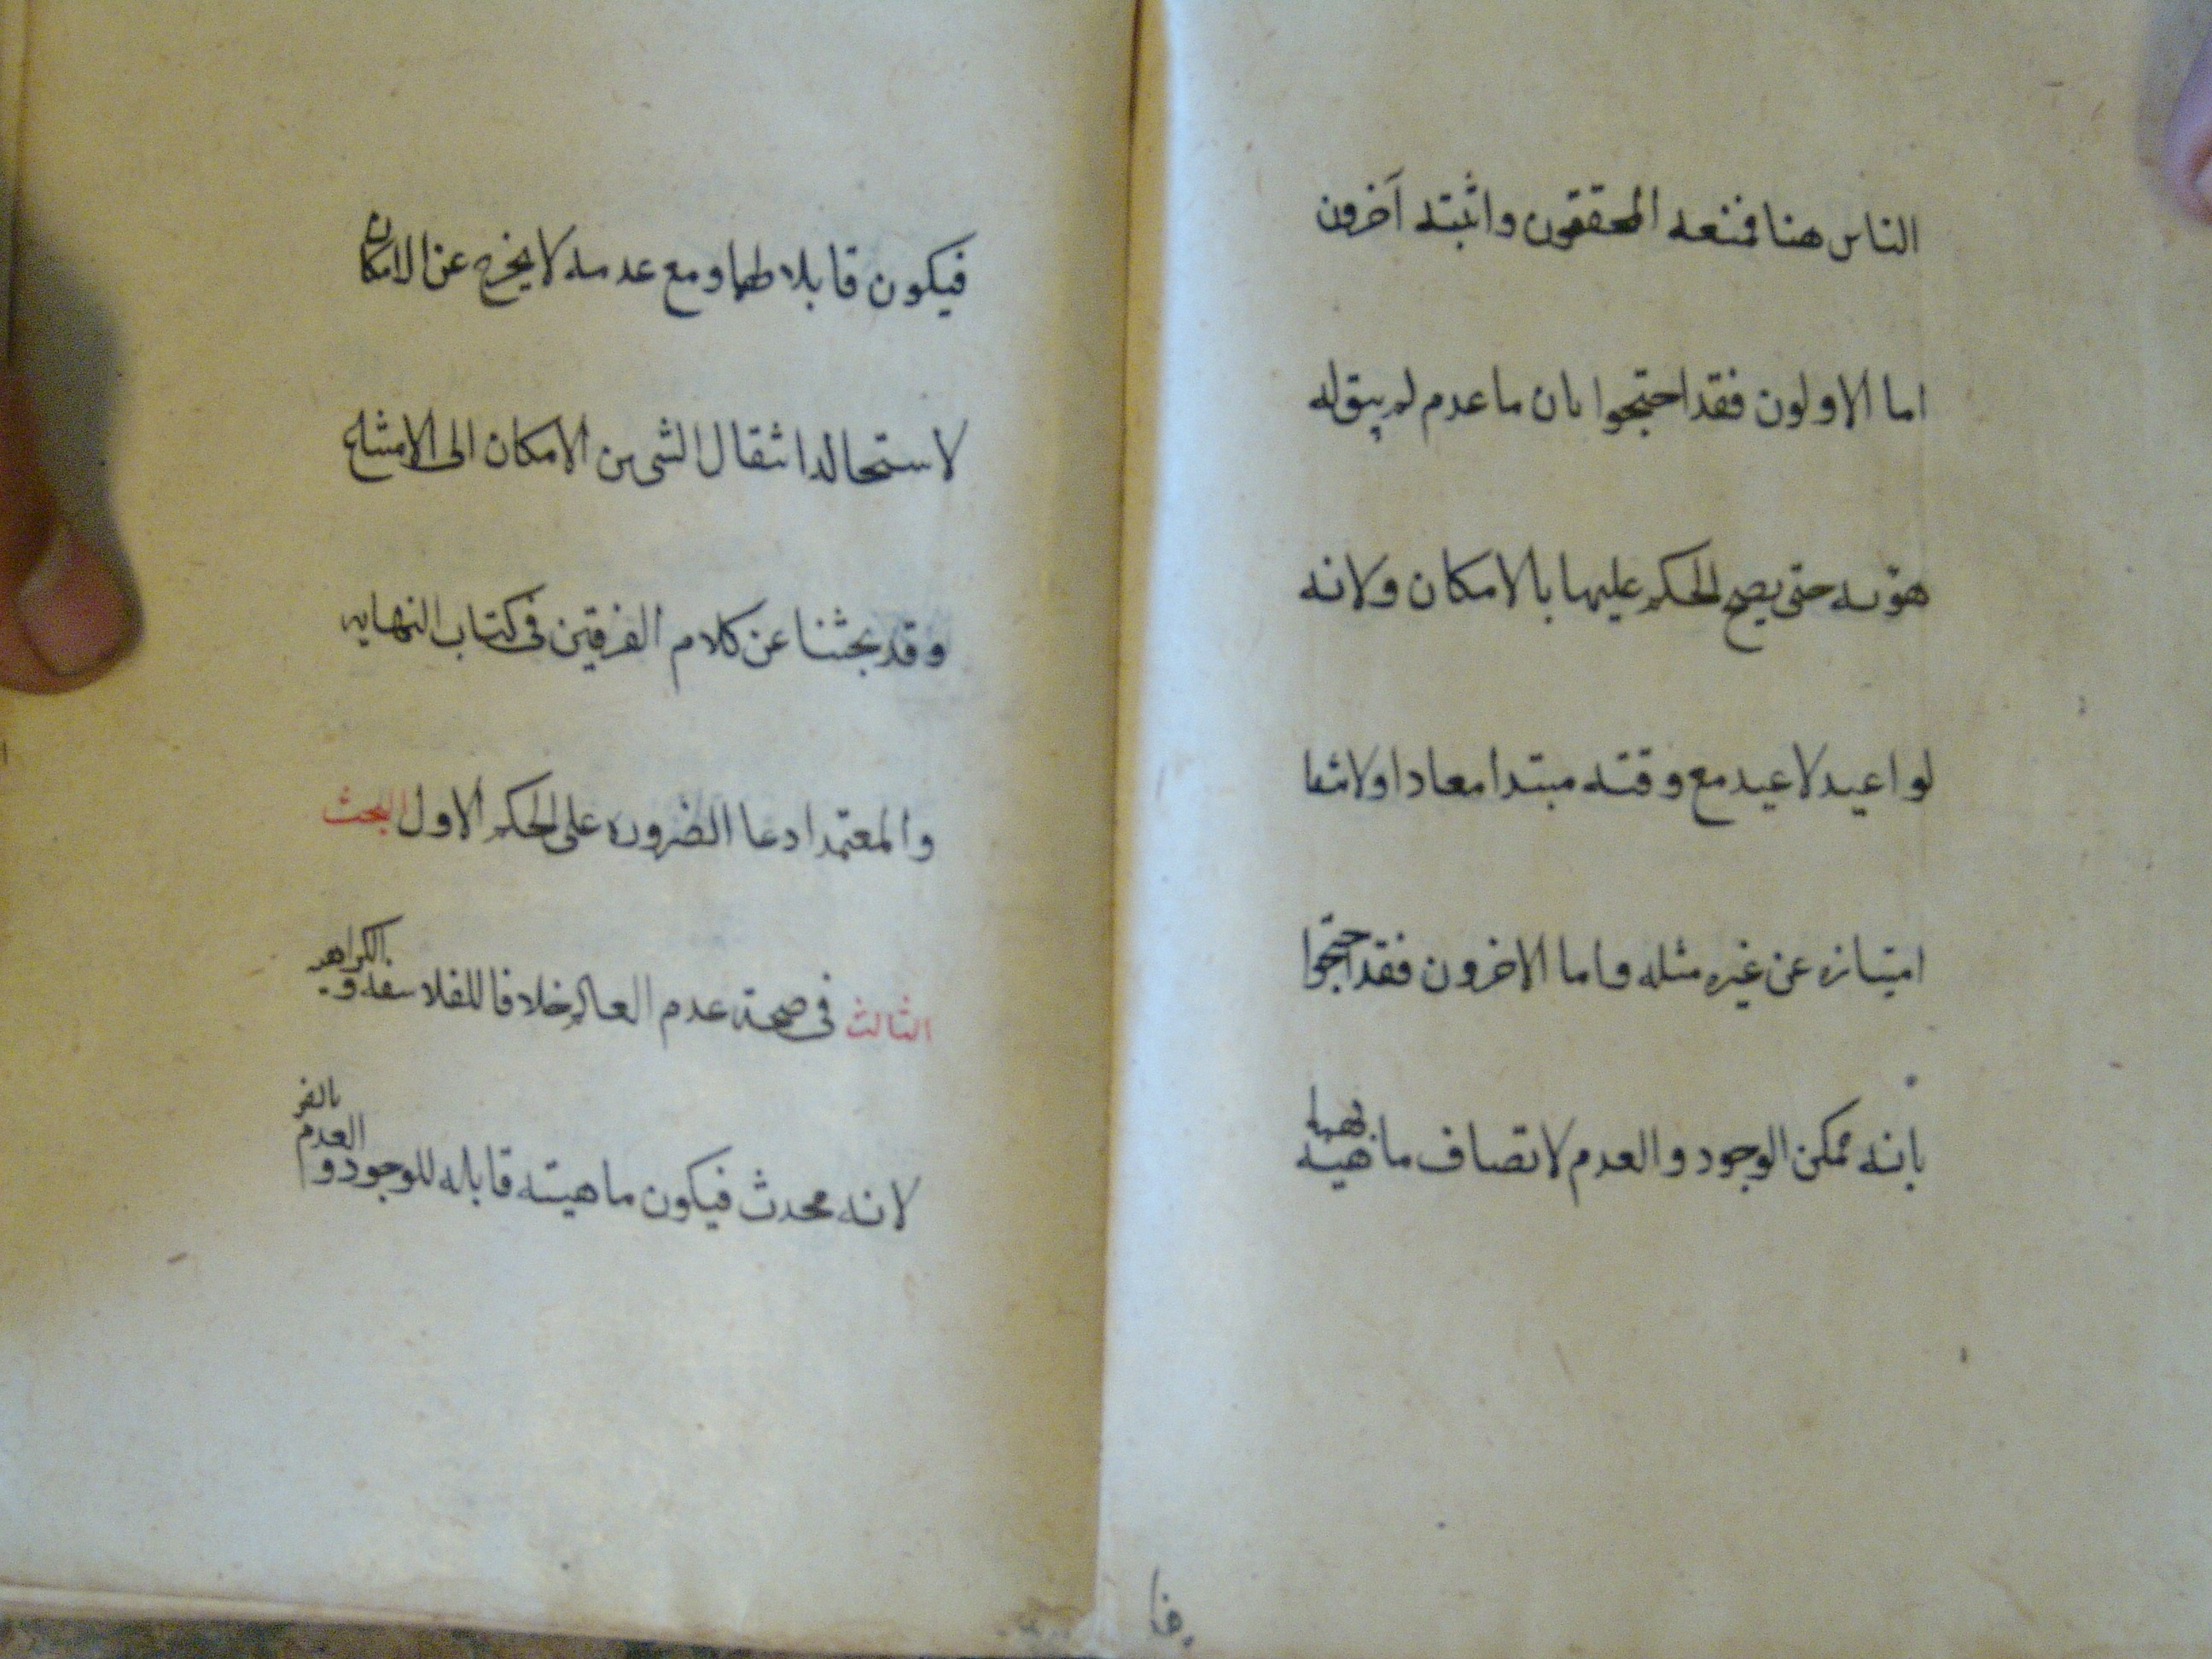 الناس هنا فمنعه المحققون واثبته آخرون
اما الاولون فقد احتجوا بان ما عدم لم يبق له
هويه حتى يصح الحكم عليها بالامكان ولانه
لو اعيد لاعيد مع وقته مبتدا معادا ولانتفا
امتيازه عن غيره مثله واما الاخرون فقد احتجوا
بانه ممكن الوجود والعدم لاتصاف ماهيه بهما
فيكون قابلا لهما ومع عدمه لا يخرج عن الامكان
لاستحاله انتقال الشى من الامكان الى الامتناع
وقد بحثنا عن كلام الفرقتين فى كتاب النهايه
والمعتمد ادعا الضروره على الحكم الاول البحث
الثالث فى صحة عدم العالم خلافا للفلاسفه والكراميه
لانه محدث فيكون ماهيته قابله للوجود والعدم